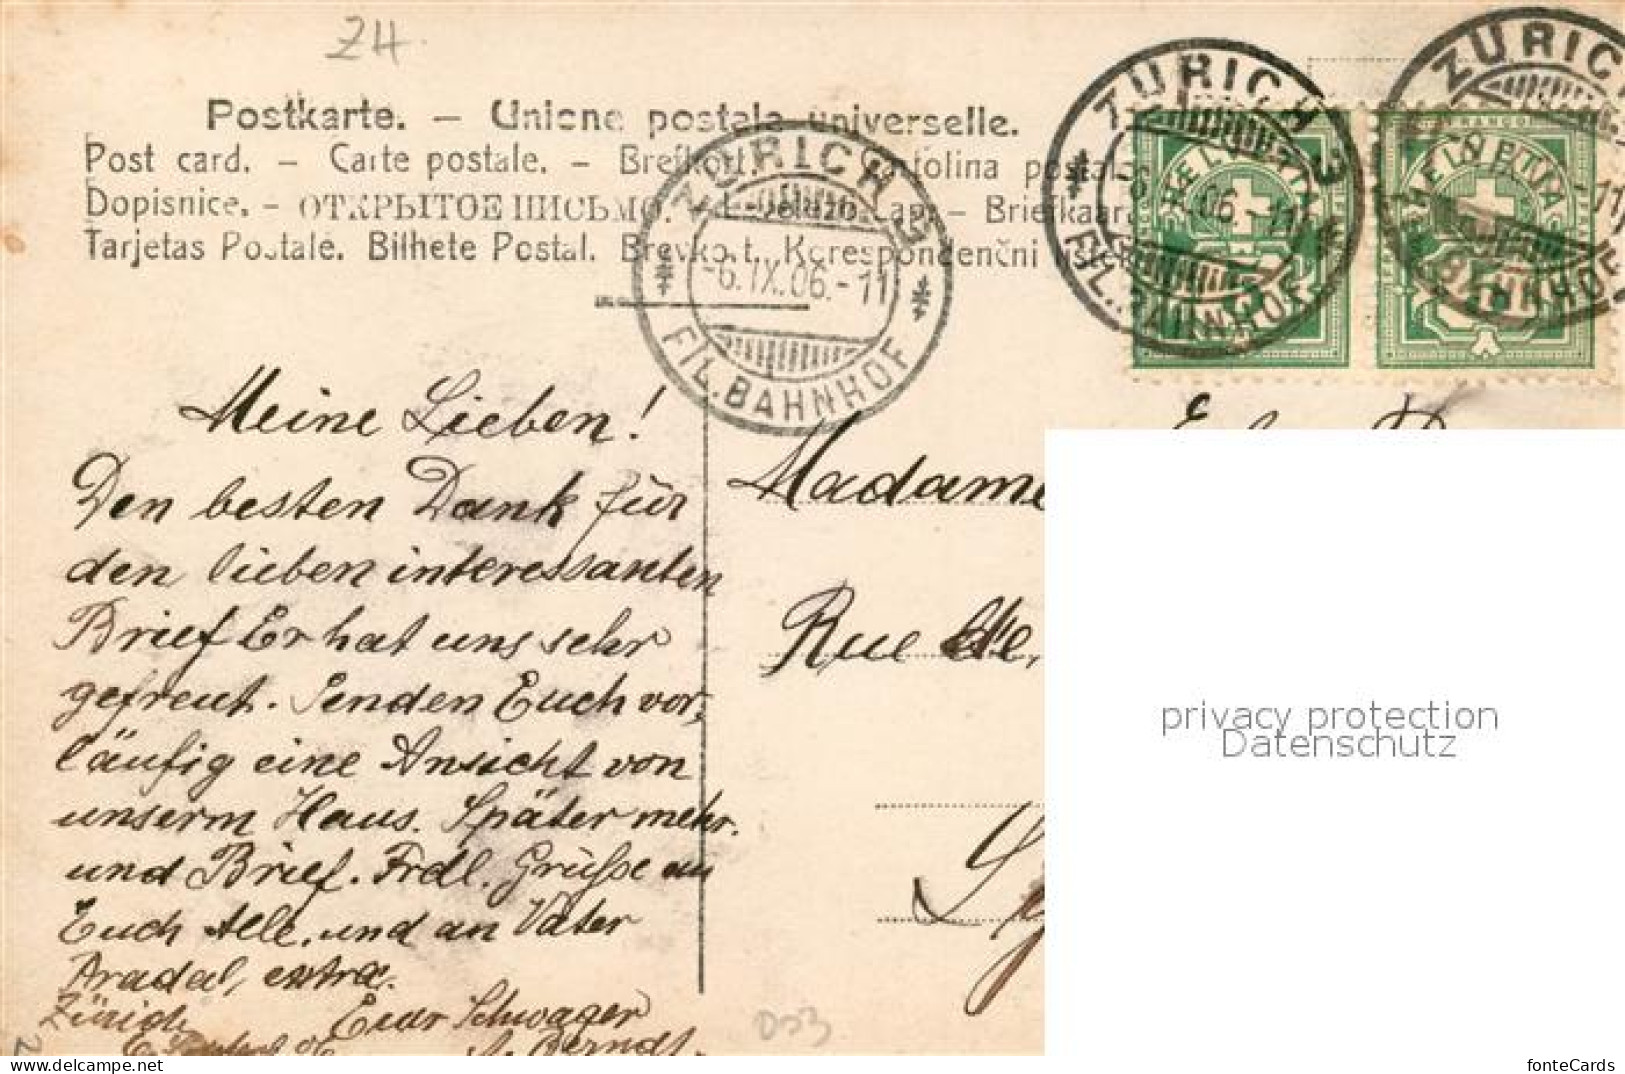 ZH.
Postkarte. – Unione postale universelle.
Post card. – Carte postale. – Brefkort. – Cartolina postale
Dopisnice. – ОТКРЫТОЕ ПИСЬМО. – Lap. – Briefkaar
Tarjetas Postale. Bilhete Postal. Brevkort. Korespondenční lístek
ZÜRICH 3
-6.IX.06.-11
FIL. BAHNHOF
ZÜRICH 3
-6.IX.06.-11
FIL. BAHNHOF
ZÜRICH
-11
BAHNHOF
HELVETIA
FRANCO
HELVETIA
Meine Lieben!
Den besten Dank für
den lieben interessanten
Brief Er hat uns sehr
gefreut. Senden Euch vor,
läufig eine Ansicht von
unserm Haus. Später mehr.
und Brief. Frdl. Grüsse an
Euch Alle, und an Vater
Aradal, extra.
Zürich Eur Schwager
Madame
Rue de
privacy protection
Datenschutz
fonteCards